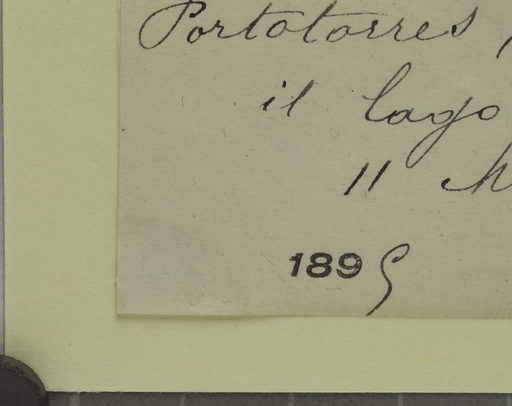 Portotorres,
il lago
11 M
1895